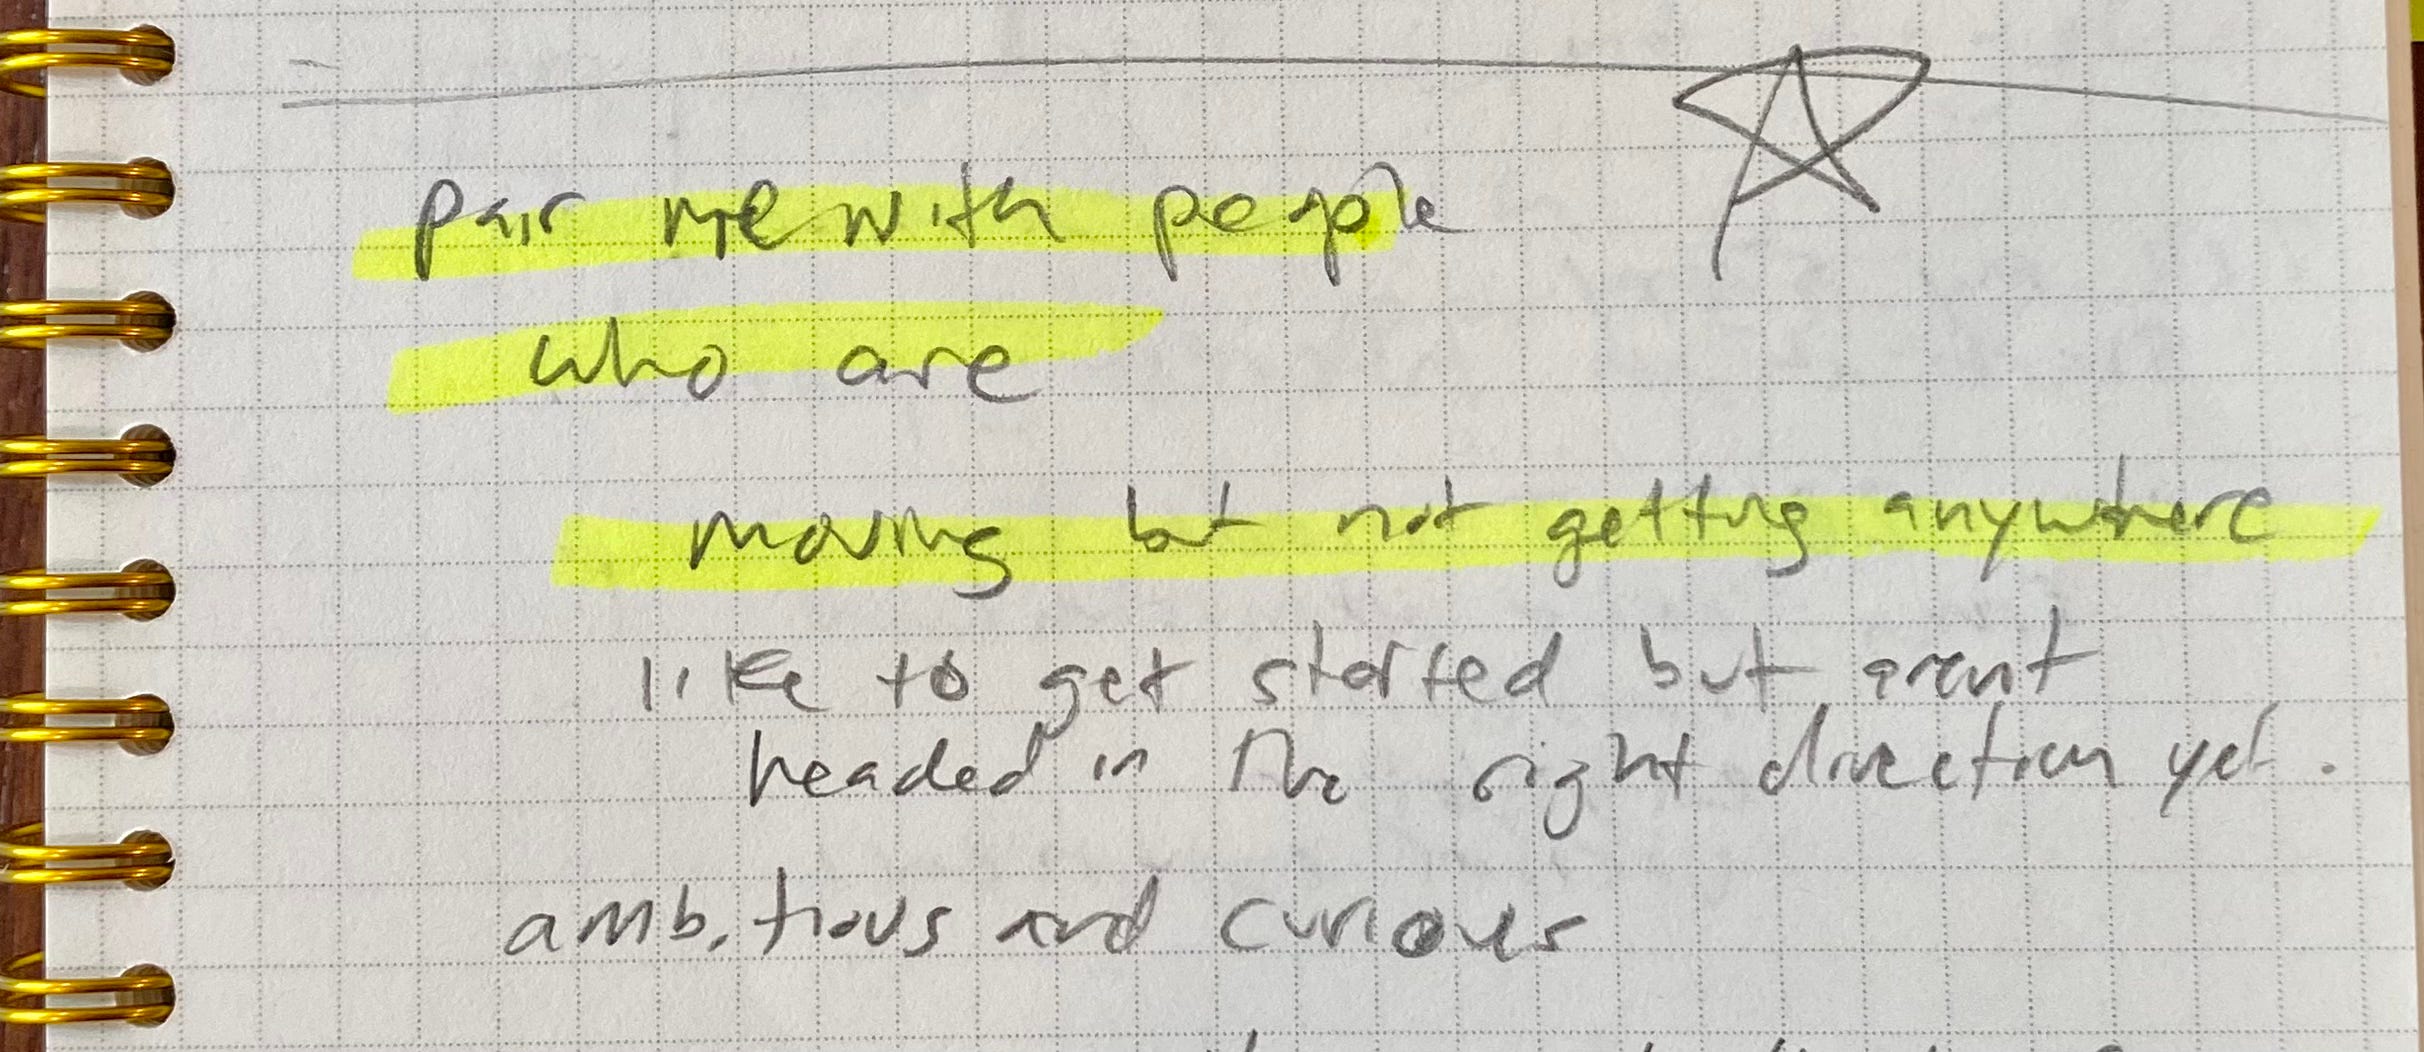 pair me with people
who are
moving but not getting anywhere
like to get started but arent
headed in the right direction yet.
ambitious and curious